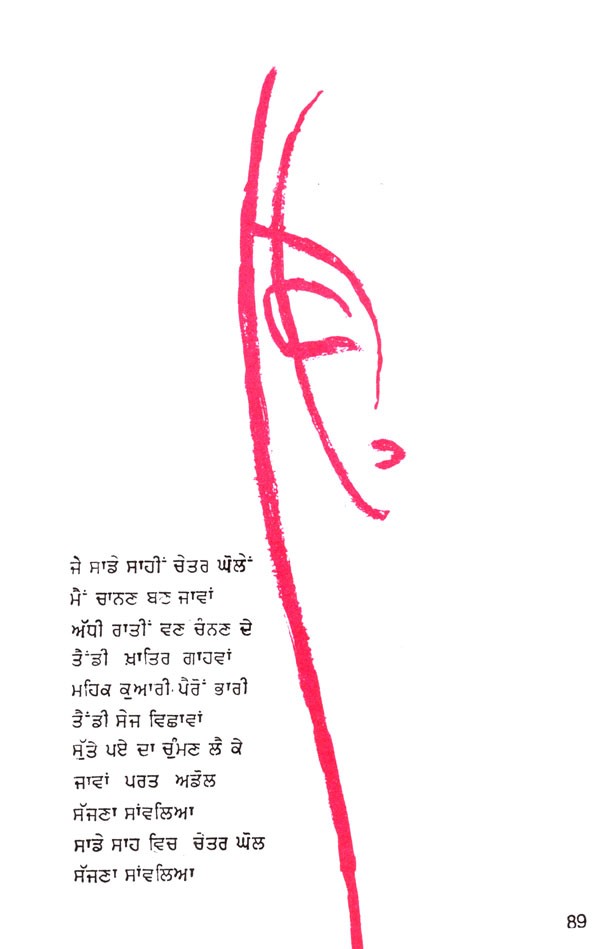 ਜੇ ਸਾਡੇ ਸਾਹੀਂ ਚੇਤਰ ਘੋਲੇਂ
ਮੈਂ ਚਾਨਣ ਬਣ ਜਾਵਾਂ
ਅੱਧੀ ਰਾਤੀਂ ਵਣ ਚੰਨਣ ਦੇ
ਤੈਂਡੀ ਖ਼ਾਤਿਰ ਗਾਹਵਾਂ
ਮਹਿਕ ਕੁਆਰੀ ਪੈਰੋਂ ਭਾਰੀ
ਤੈਂਡੀ ਸੇਜ ਵਿਛਾਵਾਂ
ਸੁੱਤੇ ਪਏ ਦਾ ਚੁੰਮਣ ਲੈ ਕੇ
ਜਾਵਾਂ ਪਰਤ ਅਡੋਲ
ਸੱਜਣਾ ਸਾਂਵਲਿਆ
ਸਾਡੇ ਸਾਹ ਵਿਚ ਚੇਤਰ ਘੋਲ
ਸੱਜਣਾ ਸਾਂਵਲਿਆ
89